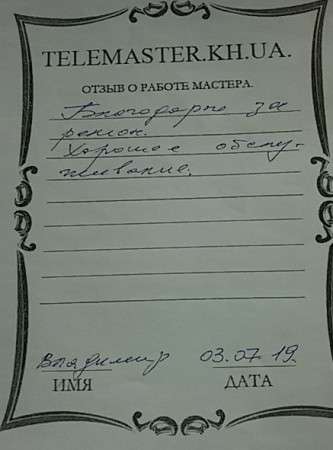 TELEMASTER.KH.UA.
ОТЗЫВ О РАБОТЕ МАСТЕРА.
Благодарю за
ремонт.
Хорошее обслу-
живание.
Владимир 03.07.19
ИМЯ ДАТА